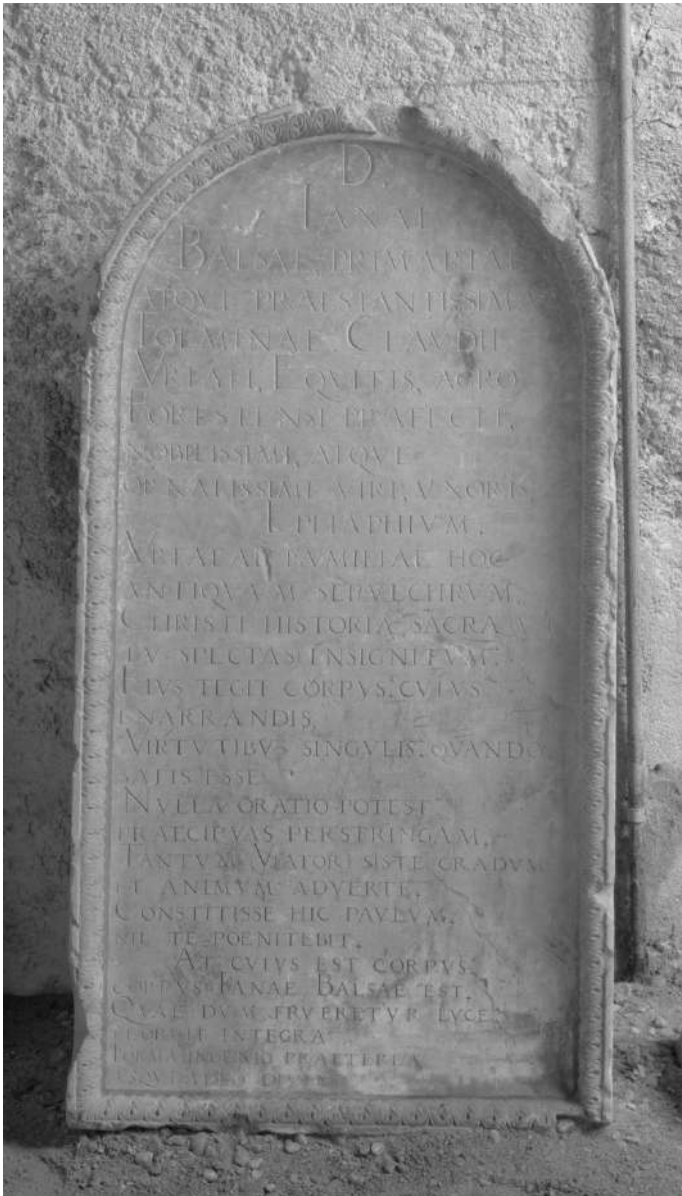 D.
IANAE
BALSAE, PRIMARIAE
ATQVE PRAESTANTISSIMAE
FOEMINAE CLAVDII
VRFAEI, EQVITIS, AGRO
FORESTENSI PRAEFECTI,
NOBILISSIMI, ATQVE
ORNATISSIMI VIRI, VXORIS,
EPITAPHIVM.
VRFAEAE FAMILIAE HOC
ANTIQVVM SEPVLCHRVM,
CHRISTI HISTORIA SACRA
TV SPECTAS INSIGNITVM:
EIVS TEGIT CORPVS, CVIVS
ENARRANDIS
VIRTVTIBVS SINGVLIS, QVANDO
SATIS ESSE
NVLLA ORATIO POTEST
PRAECIPVAS PERSTRINGAM,
TANTVM VIATOR SISTE GRADVM
ET ANIMVM ADVERTE,
CONSTITISSE HIC PAVLVM,
NIL TE POENITEBIT.
AT CVIVS EST CORPVS
CORPVS IANAE BALSAE EST,
QVAE DVM FRVERETVR LVCE
INTEGRA
FORMA INGENIO PRAETEREA